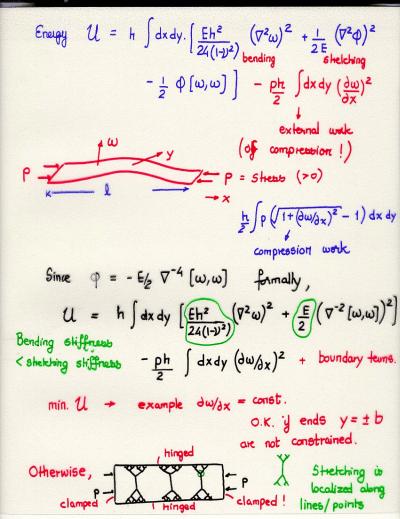 Energy U = h ∫ dx dy. [ Eh²/24(1-ν²) (∇²ω)² + 1/2E (∇²Φ)²
bending stretching
- 1/2 Φ [ω,ω] ] - ph/2 ∫ dx dy (∂ω/∂x)²
external work
(of compression !)
ω
y
P
P = stress (>0)
l
x
h/2 ∫ p (√1+(∂ω/∂x)² - 1) dx dy
compression work
Since φ = - E/2 ∇⁻⁴ [ω,ω] formally,
U = h ∫ dx dy [ Eh²/24(1-ν²) (∇²ω)² + E/2 (∇⁻² [ω,ω])² ]
Bending stiffness
< stretching stiffness
- ph/2 ∫ dx dy (∂ω/∂x)² + boundary terms.
min. U → example ∂ω/∂x = const.
O.K. if ends y = ± b
are not constrained.
hinged
Otherwise,
P
P
clamped
hinged
clamped !
Stretching is
localized along
lines/points